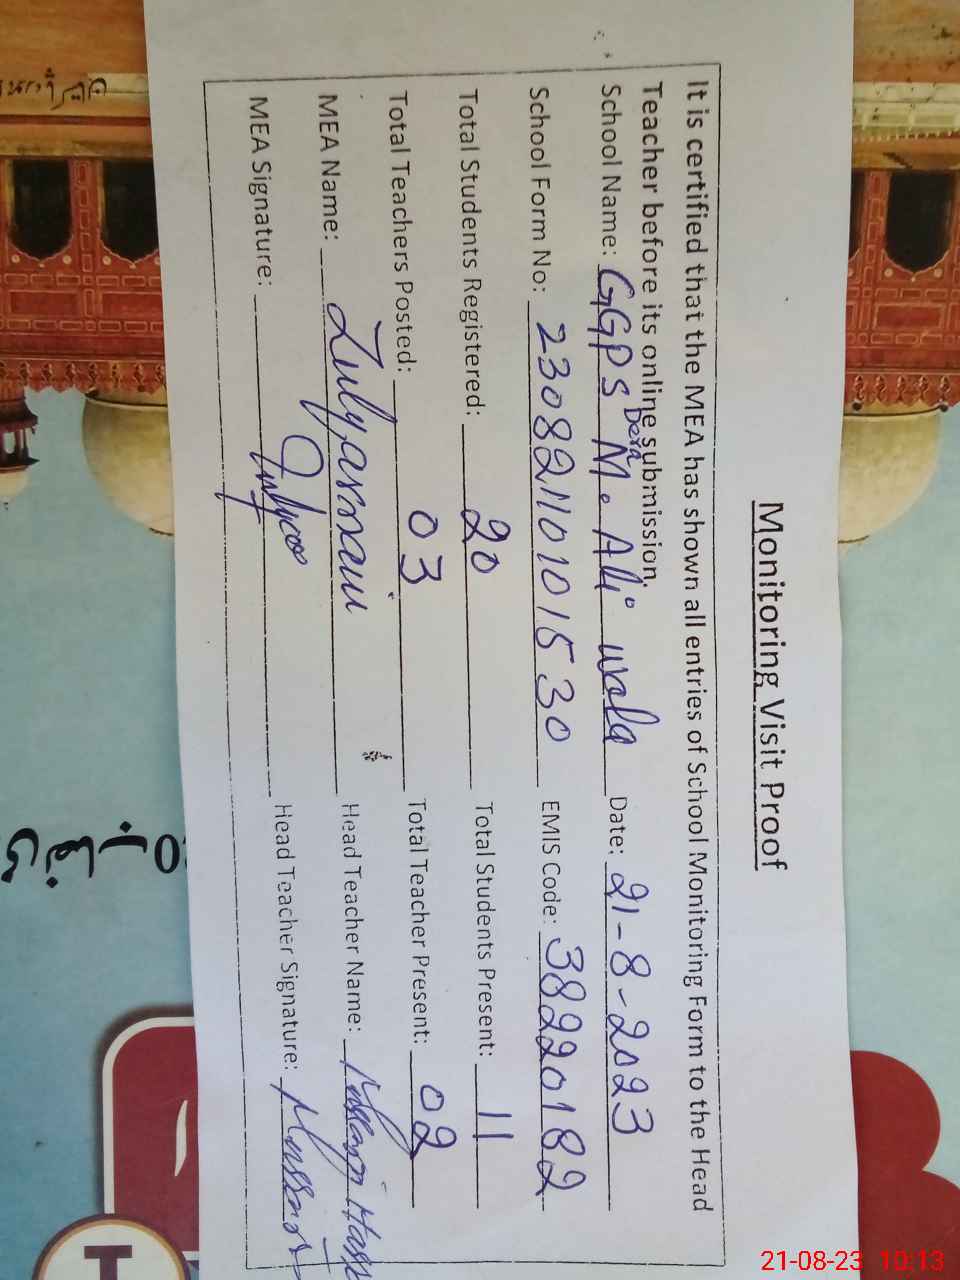 Monitoring Visit Proof
It is certified that the MEA has shown all entries of School Monitoring Form to the Head
Teacher before its online submission.
School Name: GGPS Dera M. Ali wala Date: 21-8-2023
School Form No: 23082110101530 EMIS Code: 38220182
Total Students Registered: 20 Total Students Present: 11
Total Teachers Posted: 03 Total Teacher Present: 02
MEA Name: Head Teacher Name:
MEA Signature: Head Teacher Signature:
21-08-23 10:13